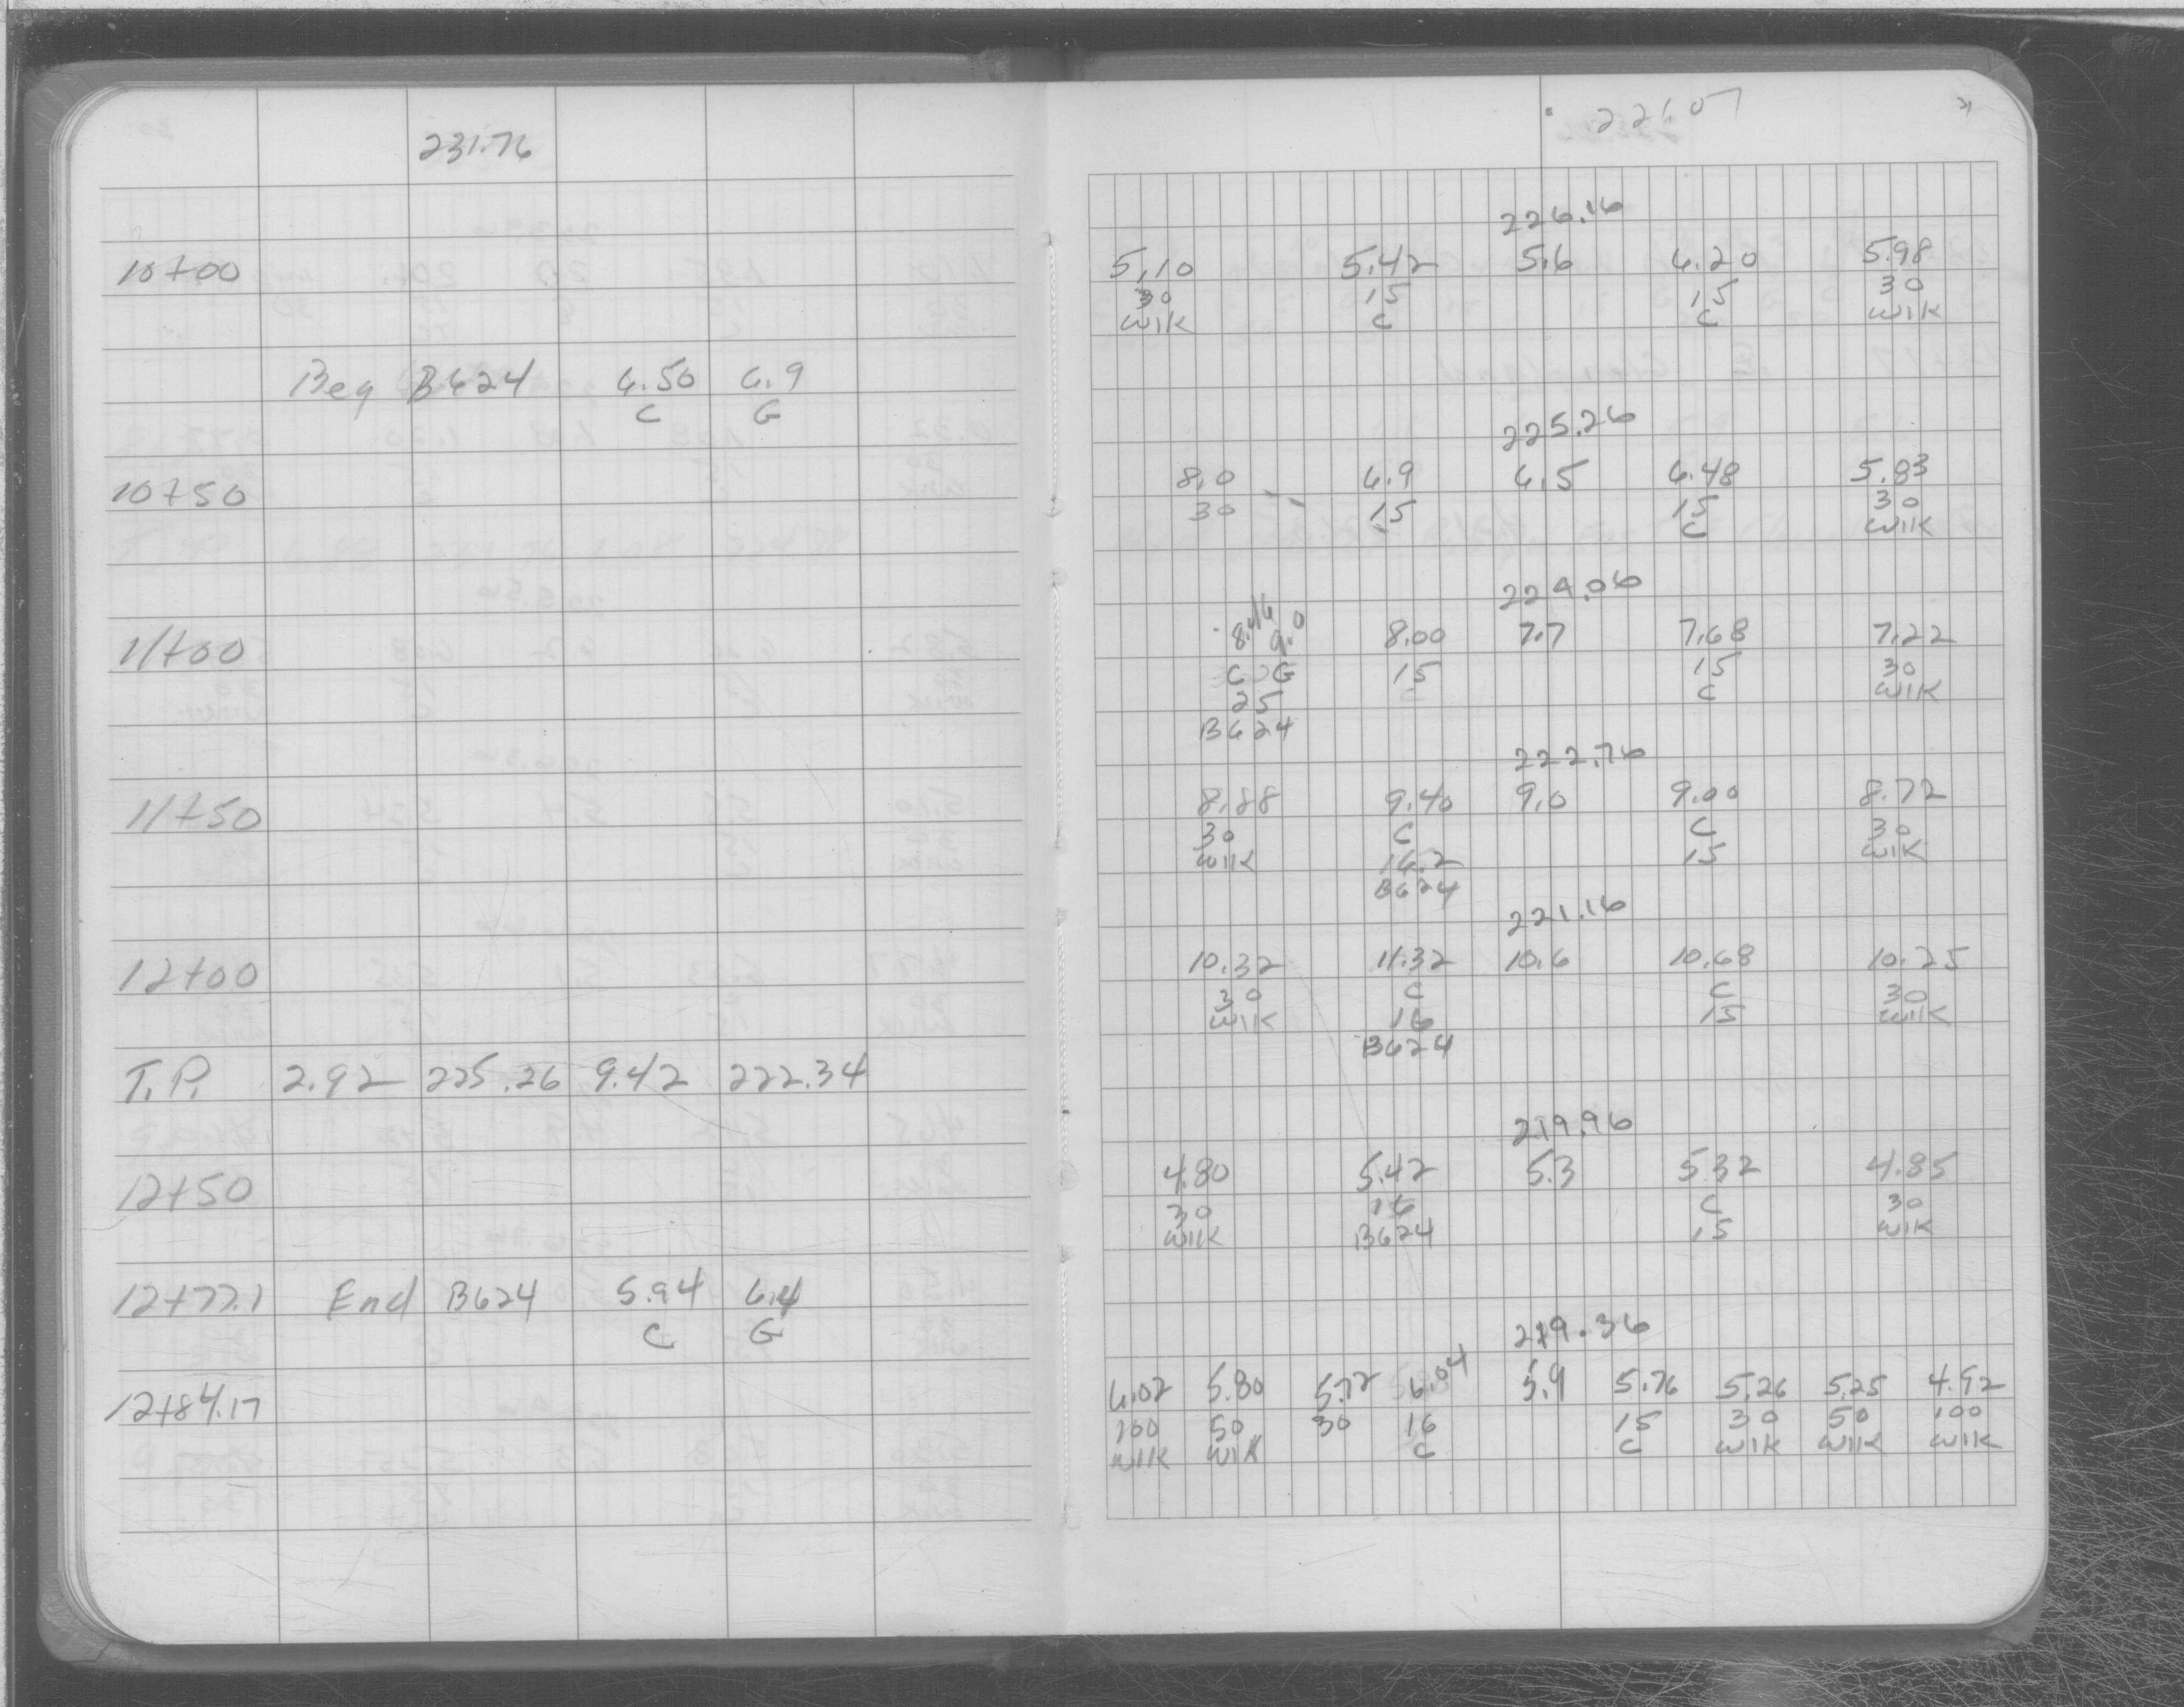 231.76
10+00
Beg B624 6.50 6.9
C G
10+50
11+00
11+50
12+00
T.P. 2.92 225.26 9.42 222.34
12+50
12+77.1 End B624 5.94 6.4
C G
12+84.17
221.07
226.16
5.10 5.42 5.6 6.20 5.98
30 15 15 30
WIK C C WIK
225.26
8.0 6.9 6.5 6.48 5.83
30 15 15 30
C WIK
224.06
8.46 9.0 8.00 7.7 7.68 7.22
C G 15 15 30
25 C C WIK
B624
222.76
8.88 9.40 9.0 9.00 8.72
30 C C 30
WIK 16.2 15 WIK
B624
221.16
10.32 11.32 10.6 10.68 10.25
30 C C 30
WIK 16 15 WIK
B624
219.96
4.80 5.42 5.3 5.32 4.85
30 16 C 30
WIK B624 15 WIK
219.36
6.02 5.80 5.72 6.04 5.9 5.76 5.26 5.25 4.92
100 50 30 16 15 30 50 100
WIK WIK C C WIK WIK WIK